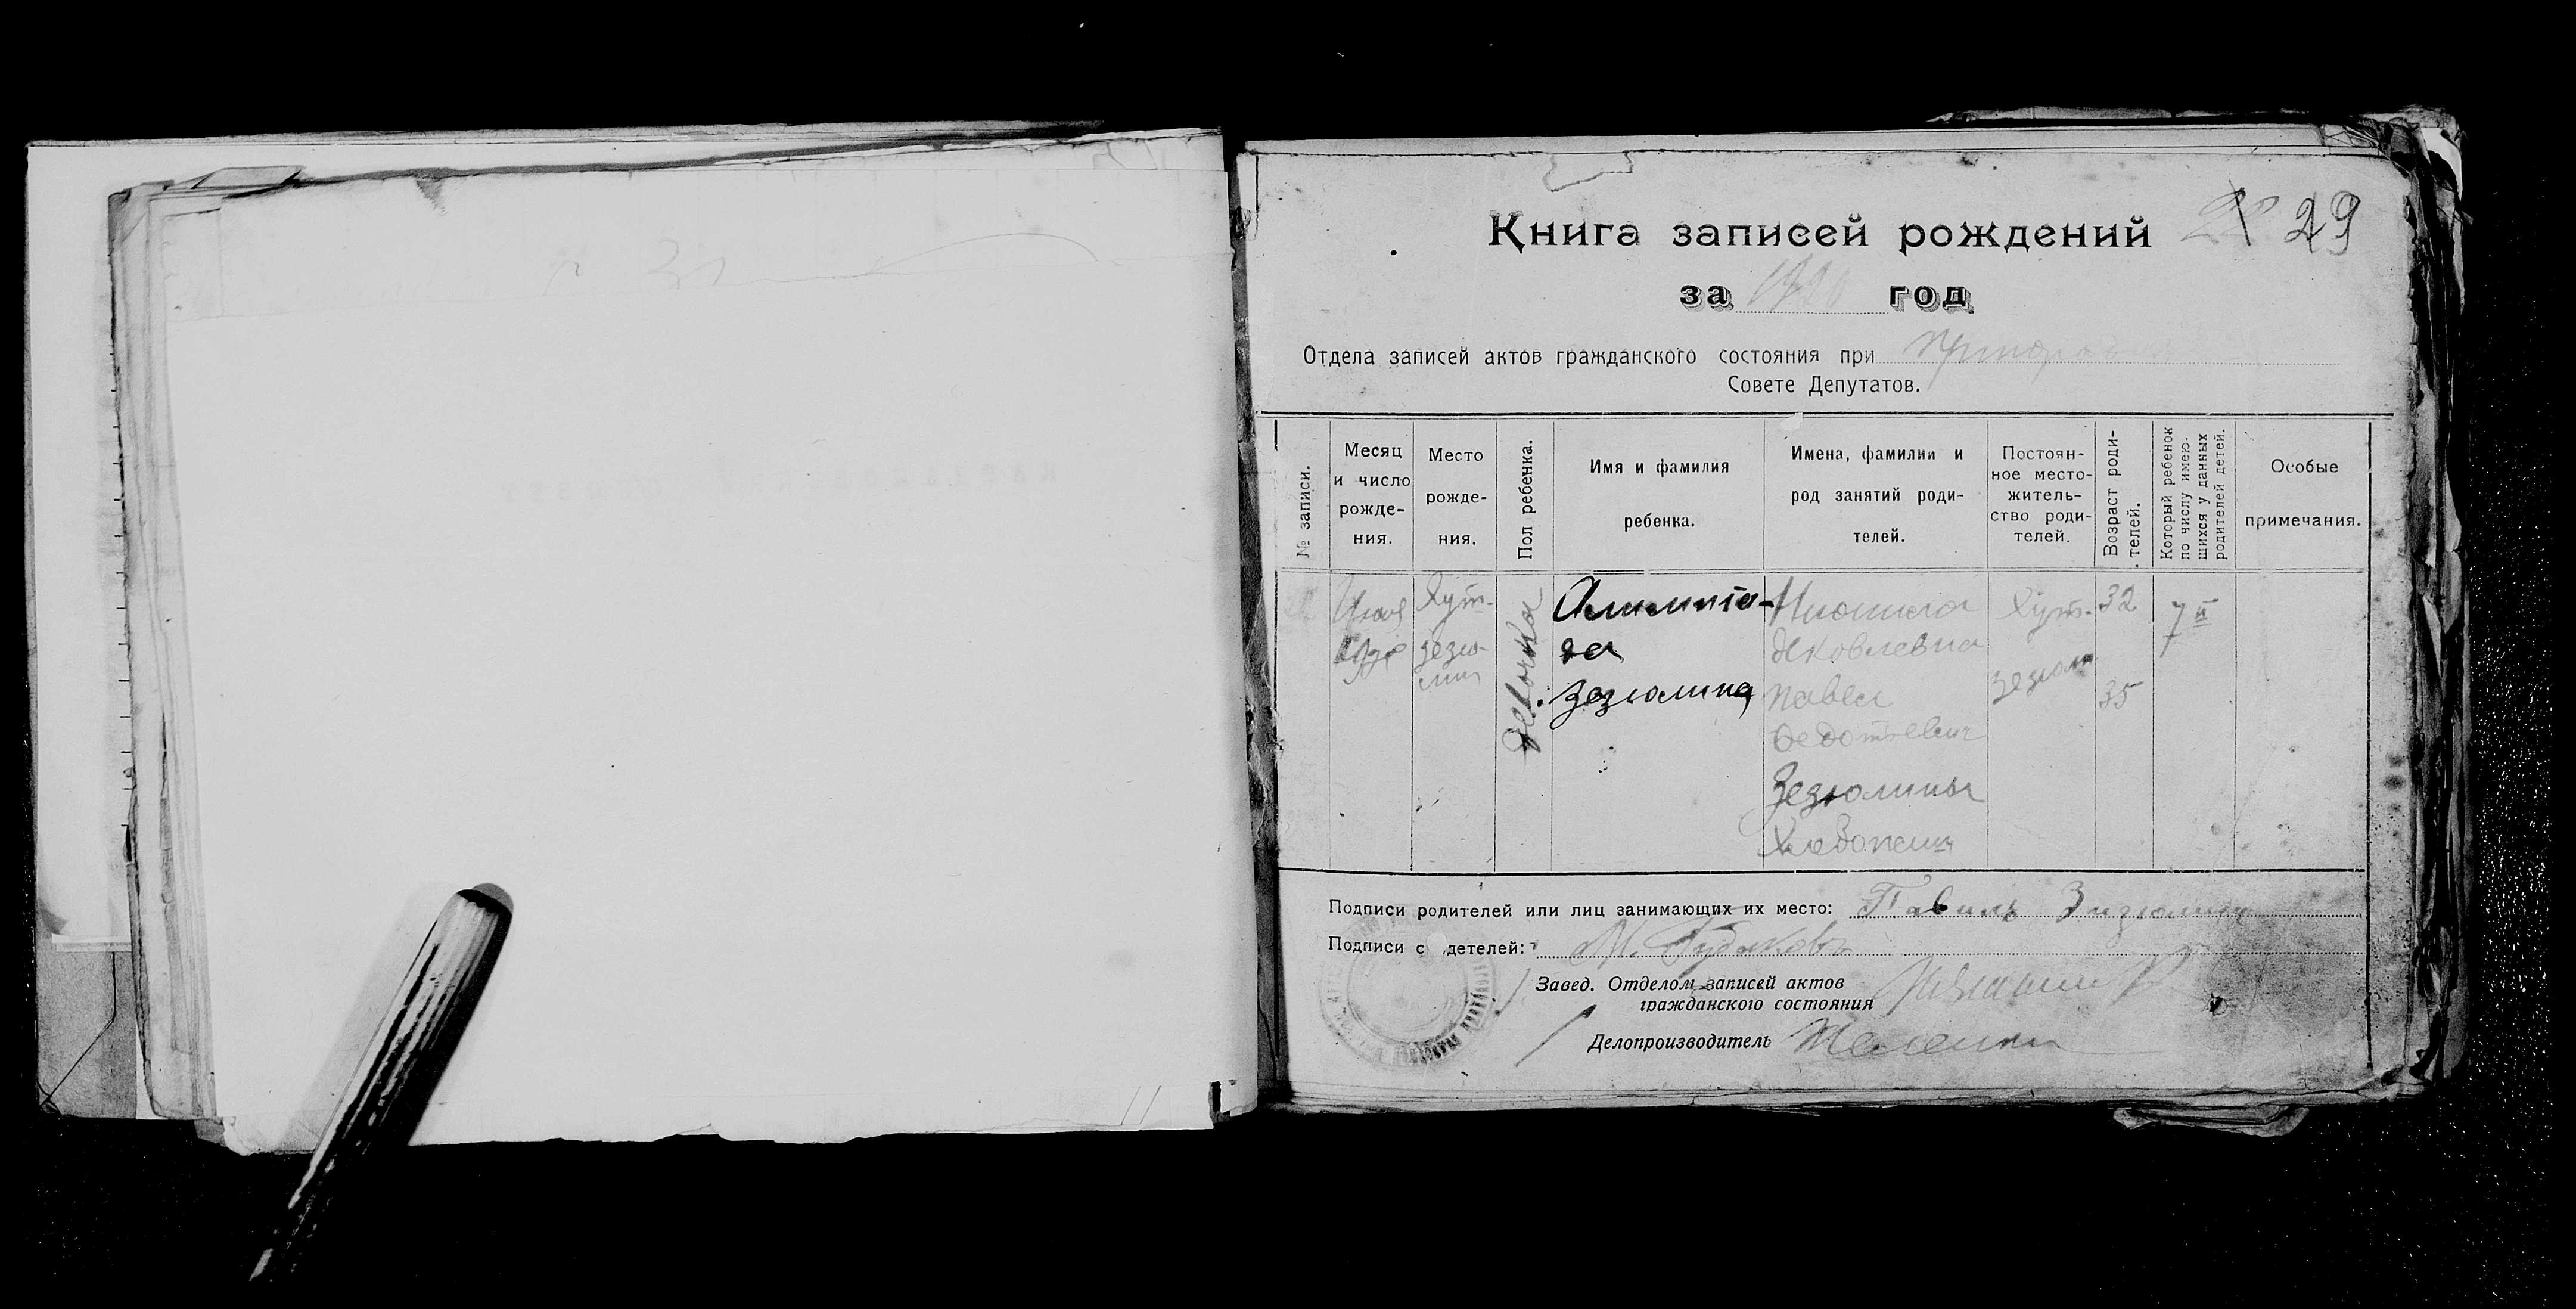 Книга записей рождений 29
за 1920 год
Отдела записей актов гражданского состояния при
Совете Депутатов.
№ записи.
Месяц
и число
рожде-
ния.
Место
рожде-
ния.
Пол ребенка.
Имя и фамилия
ребенка.
Имена, фамилии и
род занятий роди-
телей.
Постоян-
ное место-
житель-
ство роди-
телей.
Возраст роди-
телей.
Который ребенок
по числу имею-
шихся у данных
родителей детей.
Особые
примечания.
Июля
Хут.
Зезю-
лин
девочка
Зезюлина
Яковлевна
Павел
Федотьевич
Зезюлины
Хлебопашц
Хут.
Зезюлин
32
35
7й
Подписи родителей или лиц занимающих их место: Павиль Зизюлин
Подписи с детелей: М. Гудаковъ
Завед. Отделом записей актов
гражданского состояния
Делопроизводитель